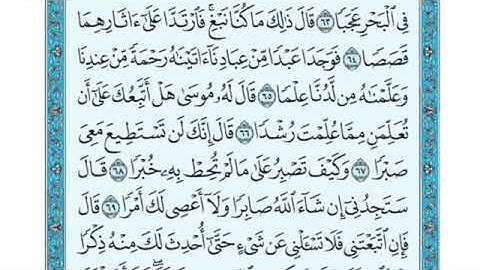 فِي ٱلْبَحْرِ عَجَبًا ٦٣ قَالَ ذَٰلِكَ مَا كُنَّا نَبْغِ ۚ فَٱرْتَدَّا عَلَىٰٓ ءَاثَارِهِمَا
قَصَصًا ٦٤ فَوَجَدَا عَبْدًا مِّنْ عِبَادِنَآ ءَاتَيْنَٰهُ رَحْمَةً مِّنْ عِندِنَا
وَعَلَّمْنَٰهُ مِن لَّدُنَّا عِلْمًا ٦٥ قَالَ لَهُۥ مُوسَىٰ هَلْ أَتَّبِعُكَ عَلَىٰٓ أَن
تُعَلِّمَنِ مِمَّا عُلِّمْتَ رُشْدًا ٦٦ قَالَ إِنَّكَ لَن تَسْتَطِيعَ مَعِيَ
صَبْرًا ٦٧ وَكَيْفَ تَصْبِرُ عَلَىٰ مَا لَمْ تُحِطْ بِهِۦ خُبْرًا ٦٨ قَالَ
سَتَجِدُنِىٓ إِن شَآءَ ٱللَّهُ صَابِرًا وَلَآ أَعْصِى لَكَ أَمْرًا ٦٩ قَالَ
فَإِنِ ٱتَّبَعْتَنِى فَلَا تَسْـَٔلْنِى عَن شَىْءٍ حَتَّىٰٓ أُحْدِثَ لَكَ مِنْهُ ذِكْرًا